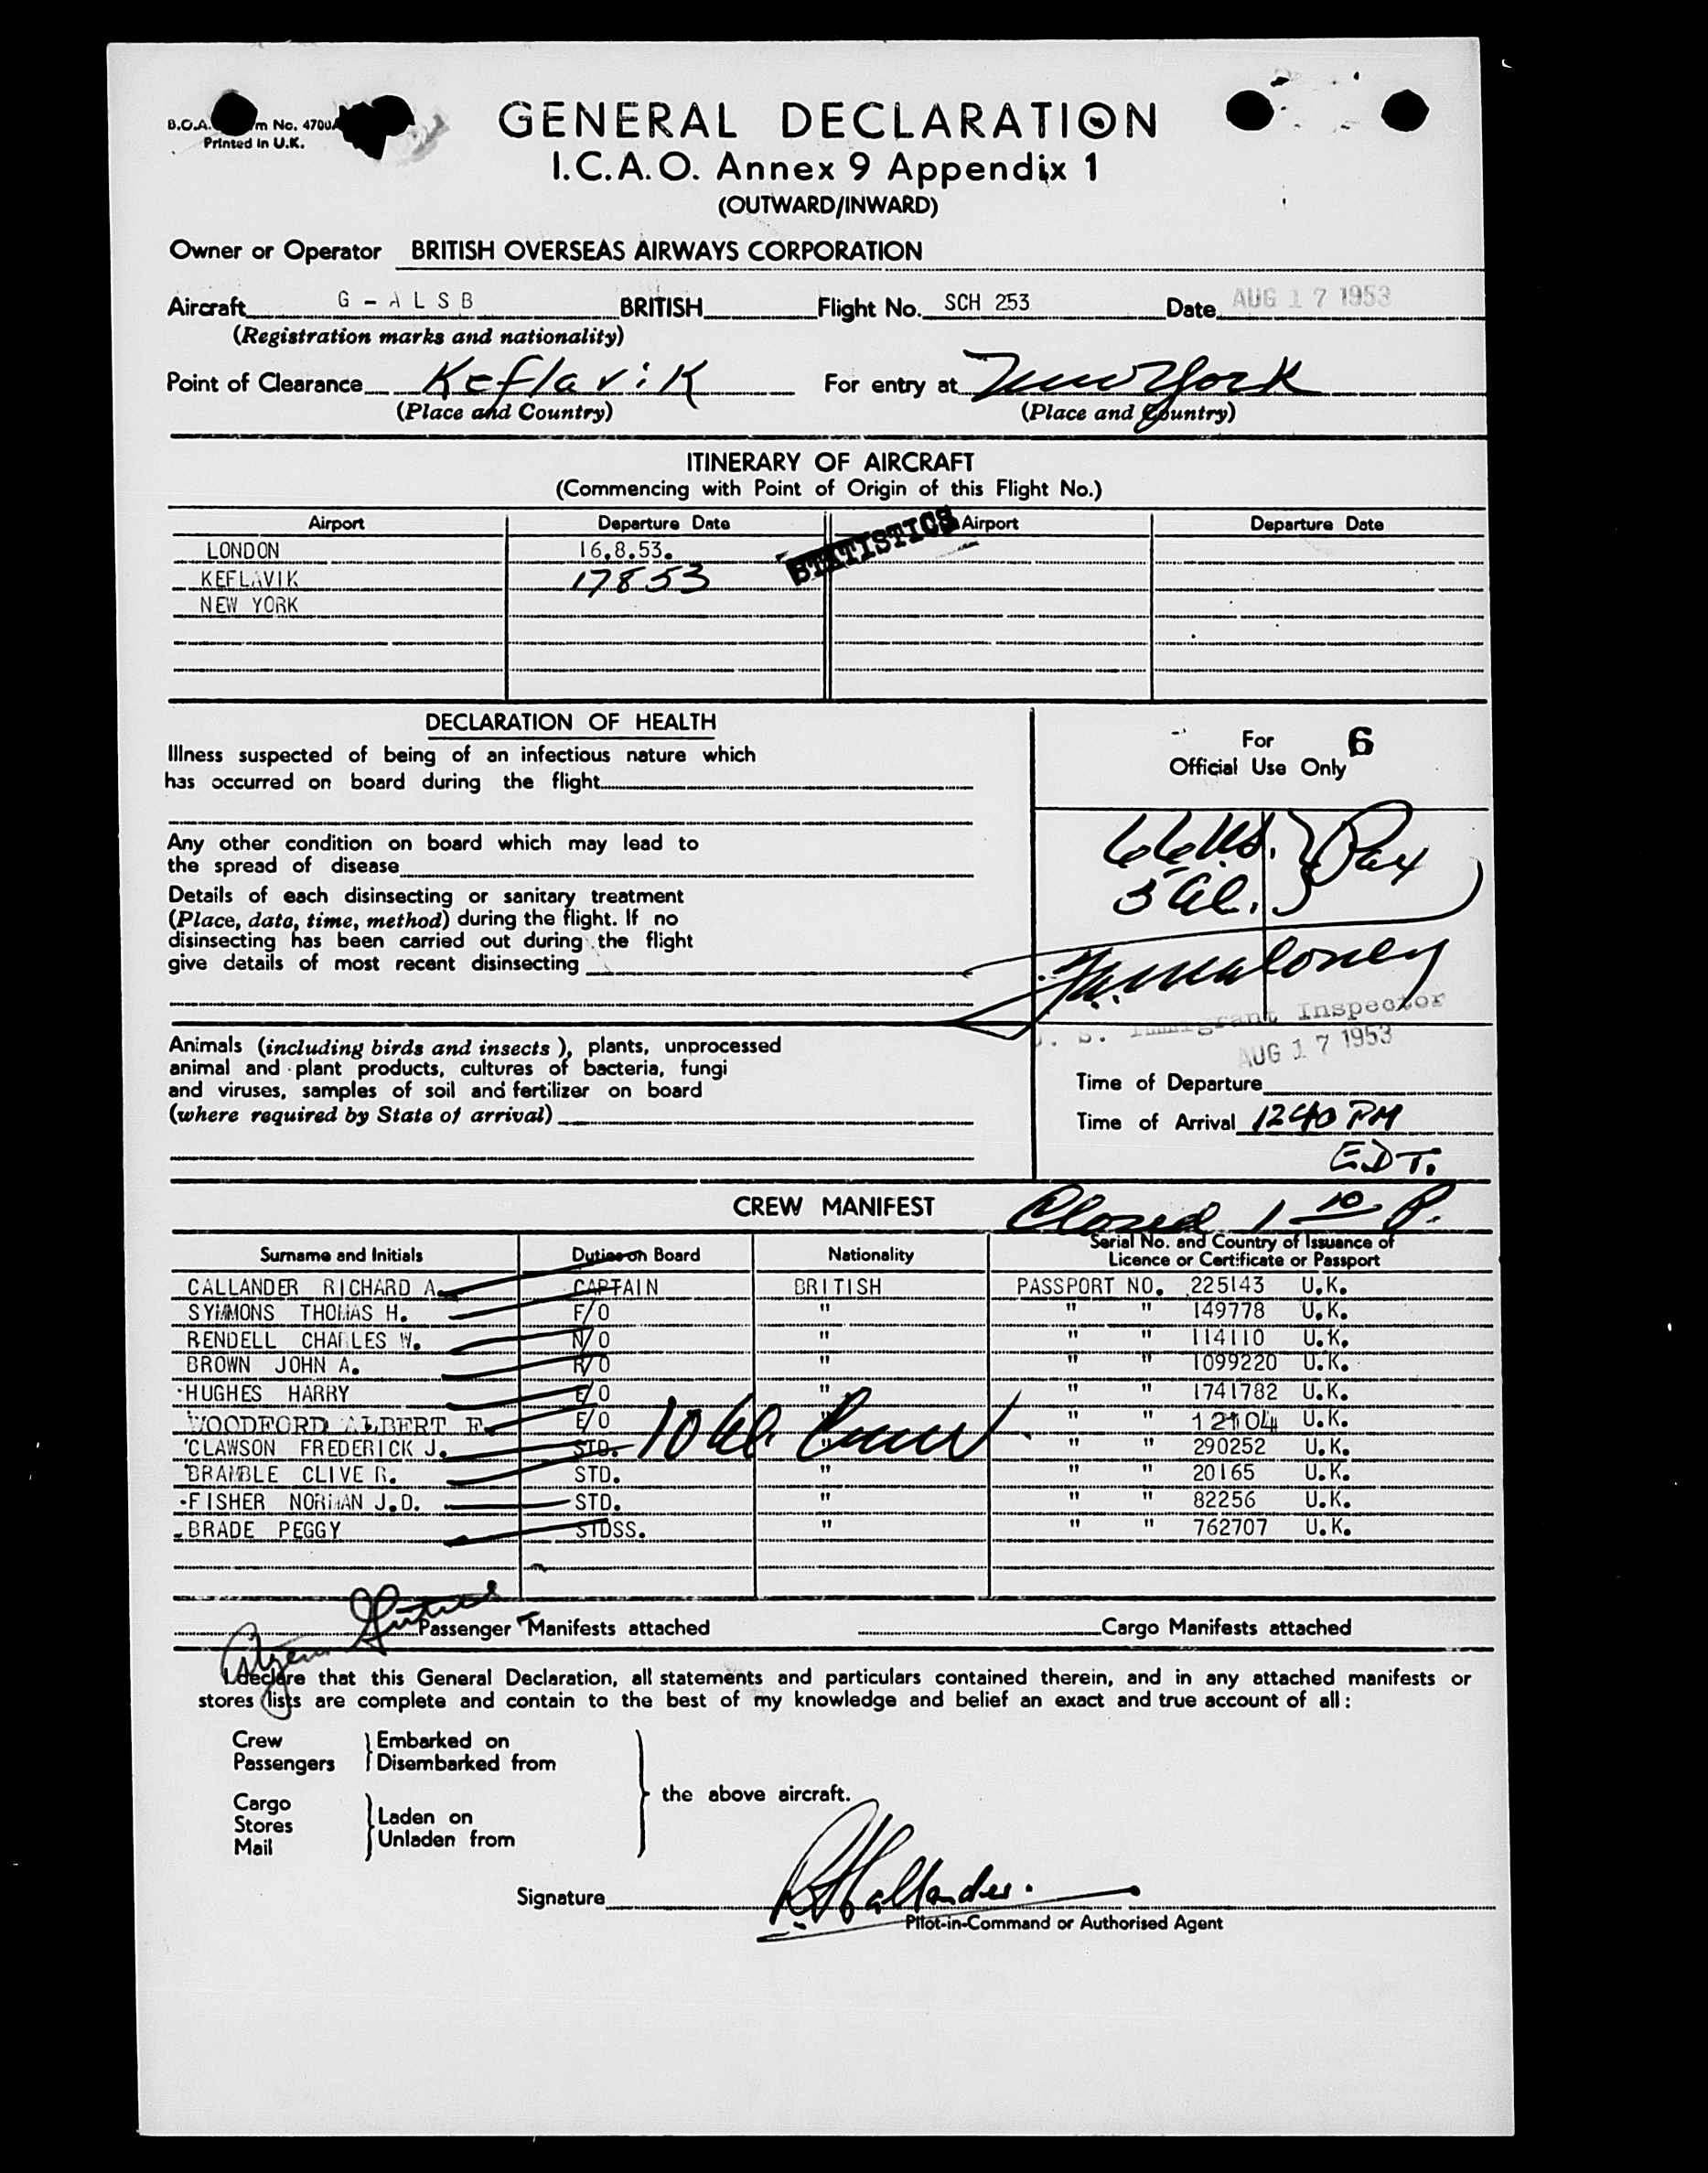 B.O.A. m No. 4700
Printed in U.K.
GENERAL DECLARATION
I.C.A.O. Annex 9 Appendix 1
(OUTWARD/INWARD)
Owner or Operator BRITISH OVERSEAS AIRWAYS CORPORATION
Aircraft G - A L S B BRITISH Flight No. SCH 253 Date AUG 17 1953
(Registration marks and nationality)
Point of Clearance Keflavik For entry at New York
(Place and Country) (Place and Country)
ITINERARY OF AIRCRAFT
(Commencing with Point of Origin of this Flight No.)
Airport Departure Date STATISTICS Airport Departure Date
LONDON 16.8.53.
KEFLAVIK 17 8 53
NEW YORK
DECLARATION OF HEALTH
Illness suspected of being of an infectious nature which
has occurred on board during the flight
Any other condition on board which may lead to
the spread of disease
Details of each disinsecting or sanitary treatment
(Place, data, time, method) during the flight. If no
disinsecting has been carried out during the flight
give details of most recent disinsecting
Animals (including birds and insects), plants, unprocessed
animal and plant products, cultures of bacteria, fungi
and viruses, samples of soil and fertilizer on board
(where required by State of arrival)
For 6
Official Use Only
Pax
5 al.
Maloney
U. S. Immigrant Inspector
AUG 17 1953
Time of Departure
Time of Arrival 1240 PM
EDT.
CREW MANIFEST Closed 1 10 P.
Surname and Initials Duties on Board Nationality Serial No. and Country of Issuance of
Licence or Certificate or Passport
CALLANDER RICHARD A. CAPTAIN BRITISH PASSPORT NO. 225143 U.K.
SYMMONS THOMAS H. F/O " " " 149778 U.K.
RENDELL CHARLES W. N/O " " " 114110 U.K.
BROWN JOHN A. R/O " " " 1099220 U.K.
HUGHES HARRY E/O " " " 1741782 U.K.
WOODFORD ALBERT F. E/O " " " 12104 U.K.
CLAWSON FREDERICK J. STD. 10 " " " 290252 U.K.
BRAMBLE CLIVE R. STD. " " " 20165 U.K.
FISHER NORMAN J.D. STD. " " " 82256 U.K.
BRADE PEGGY STDSS. " " " 762707 U.K.
Passenger Manifests attached Cargo Manifests attached
I declare that this General Declaration, all statements and particulars contained therein, and in any attached manifests or
stores lists are complete and contain to the best of my knowledge and belief an exact and true account of all:
Crew Embarked on
Passengers Disembarked from
the above aircraft.
Cargo
Stores Laden on
Mail Unladen from
Signature R A Callander.
Pilot-in-Command or Authorised Agent